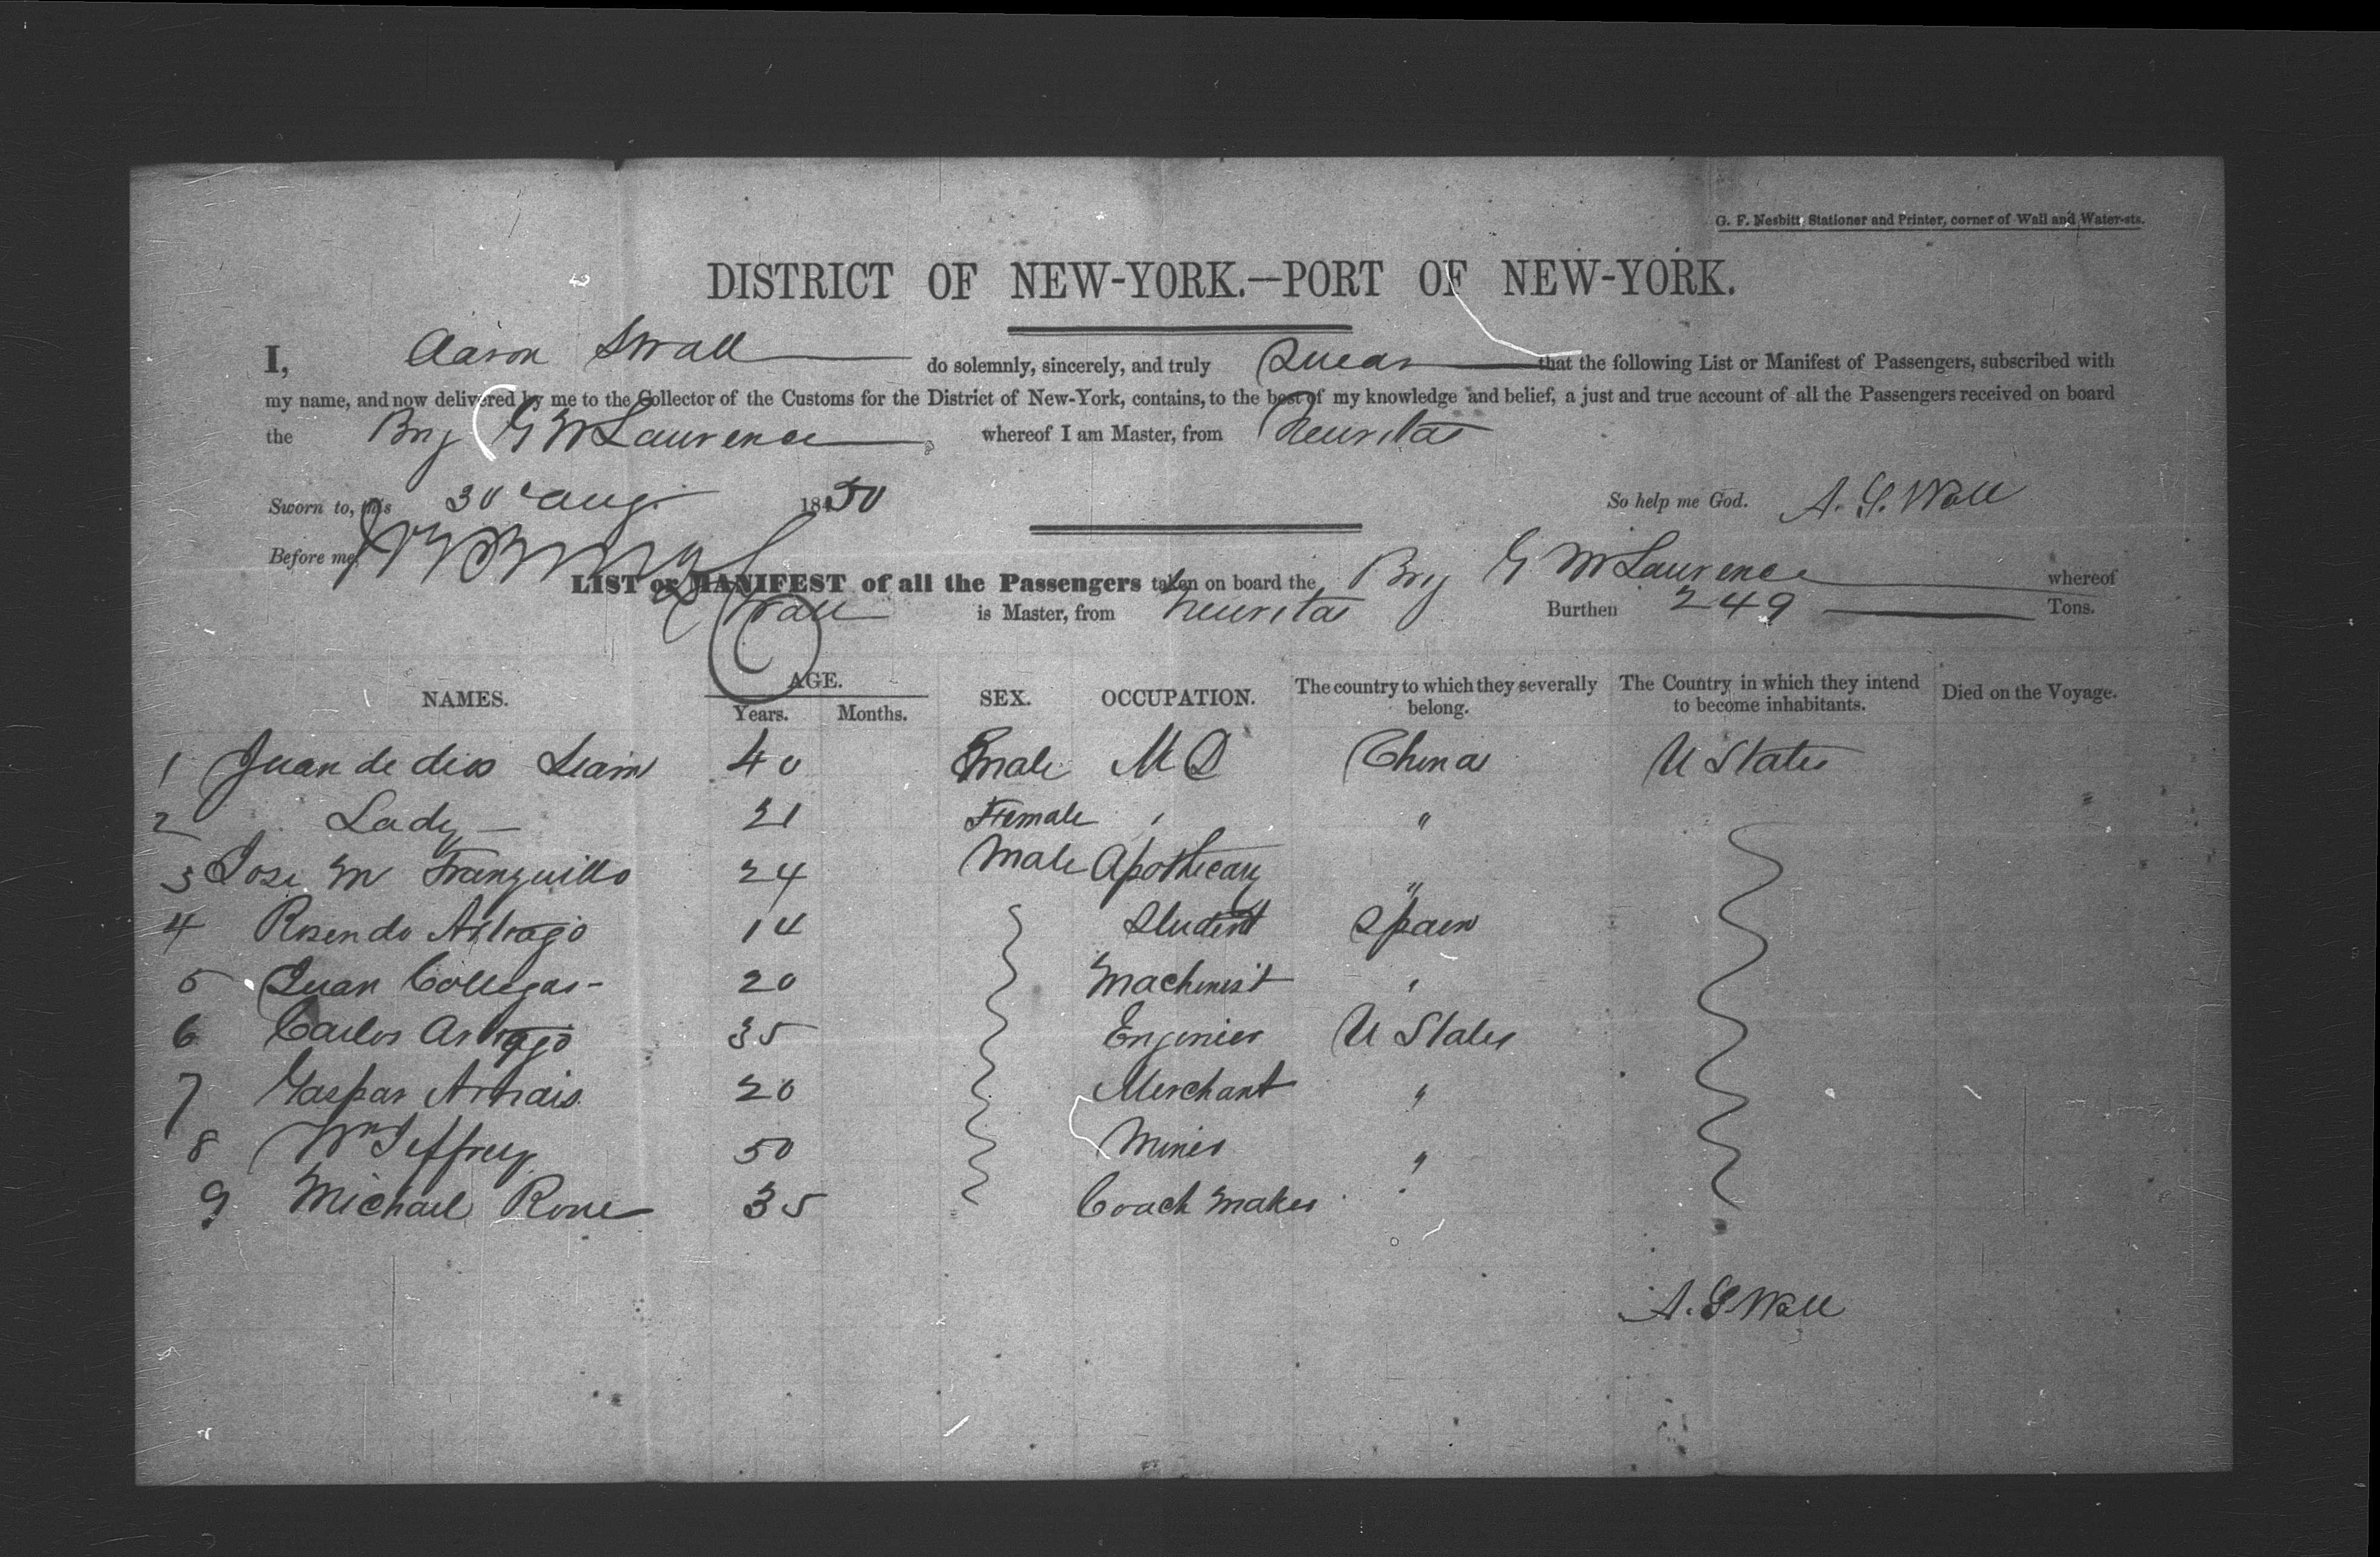 G. F. Nesbitt, Stationer and Printer, corner of Wall and Water-sts.
DISTRICT OF NEW-YORK.—PORT OF NEW-YORK.
I, Aaron do solemnly, sincerely, and truly Swear that the following List or Manifest of Passengers, subscribed with
my name, and now delivered by me to the Collector of the Customs for the District of New-York, contains, to the best of my knowledge and belief, a just and true account of all the Passengers received on board
the Brig G W Laurence whereof I am Master, from Neuvitas
Sworn to, this 30 Aug. 1850 So help me God. A. G. Wall
Before me,
LIST or MANIFEST of all the Passengers taken on board the Brig G W Laurence whereof
is Master, from Neuvitas Burthen 249 Tons.
NAMES. AGE. Years. Months. SEX. OCCUPATION. The country to which they severally belong. The Country in which they intend to become inhabitants. Died on the Voyage.
1 Juan de dios 40 male M D China U States
2 Lady 21 Female " "
3 Jose M Franquillo 24 Male Apothecary "
4 Rosendo 14 Student Spain
5 Juan Collegas 20 Machinist "
6 Carlos 35 Enginier U States
7 Gaspar Arnais 20 Merchant "
8 Wm Jeffrey 50 Miner "
9 Michael Rone 35 Coach maker "
A. G. Wall